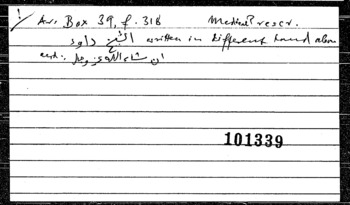 ! Ar. Box 39, f. 318 Medical Prescr.
الشيخ داود written in different hand above
end. ان شاء الله عز وجل
101339